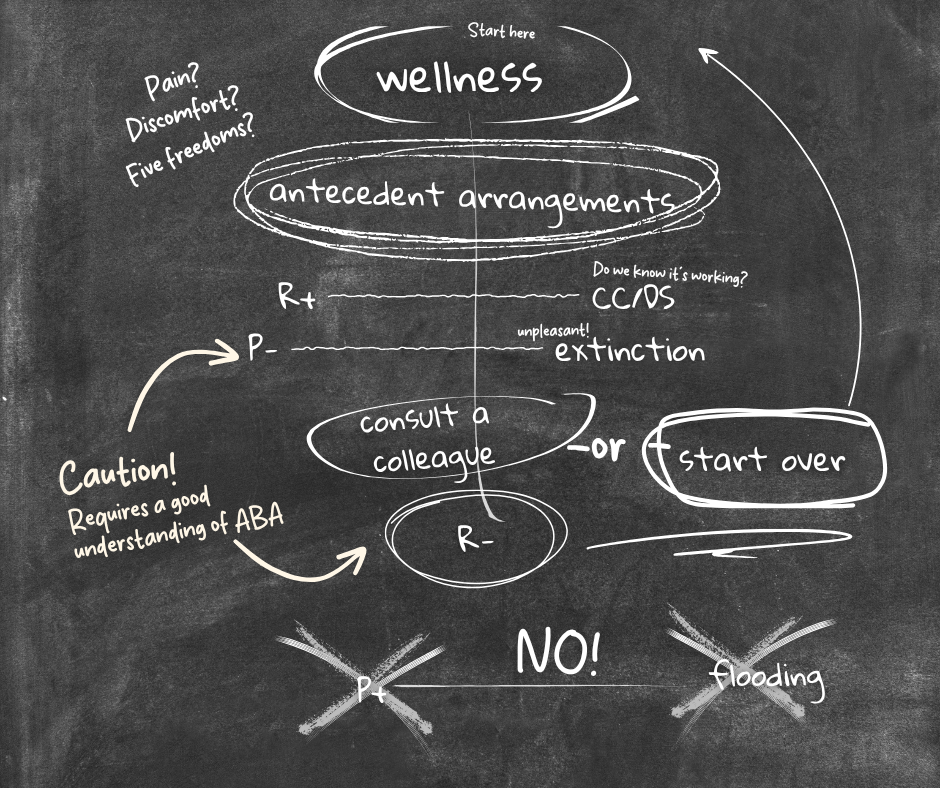 Start here
wellness
Pain?
Discomfort?
Five freedoms?
antecedent arrangements
Do we know it's working?
R+
CC/DS
unpleasant!
P-
extinction
consult a
colleague
-or +
start over
Caution!
Requires a good
understanding of ABA
R-
NO!
P+
flooding